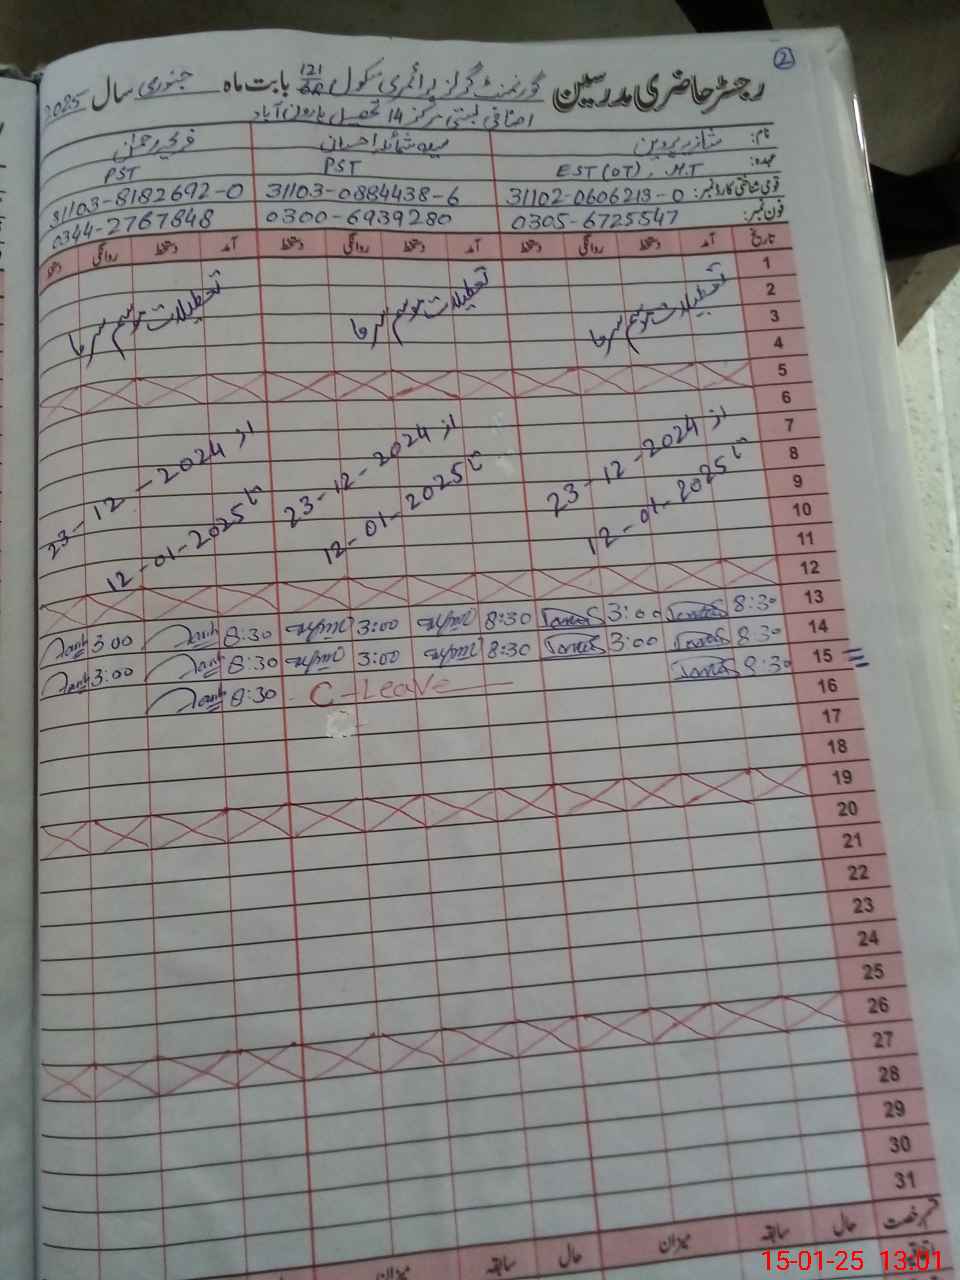 ②
رجسٹر حاضری مدرسین گورنمنٹ گرلز پرائمری سکول 121/6R بابت ماہ جنوری سال 2025
اضافی بستی مرکز 14 تحصیل ہارون آباد
نام: شازیہ پروین
فرحیہ رحمٰن
عہدہ: EST (OT), H.T PST PST
قومی شناختی کارڈ نمبر: 31102-0606213-0 31103-0884438-6 31103-8182692-0
فون نمبر: 0305-6725547 0300-6939280 0344-2767848
تاریخ آمد دستخط روانگی دستخط آمد دستخط روانگی دستخط آمد دستخط روانگی دستخط
1
2
3
4
تعطیلات موسم سرما تعطیلات موسم سرما تعطیلات موسم سرما
5
6
7
8
9
10
11
از 23-12-2024 از 23-12-2024 از 23-12-2024
تا 12-01-2025 تا 12-01-2025 تا 12-01-2025
12
13 8:30 3:00 8:30 3:00 8:30 3:00
14 8:30 3:00 8:30 3:00 8:30 3:00
15 8:30 C-Leave 8:30
16
17
18
19
20
21
22
23
24
25
26
27
28
29
30
31
قسم رخصت حال سابقہ میزان حال سابقہ میزان
15-01-25 13:01